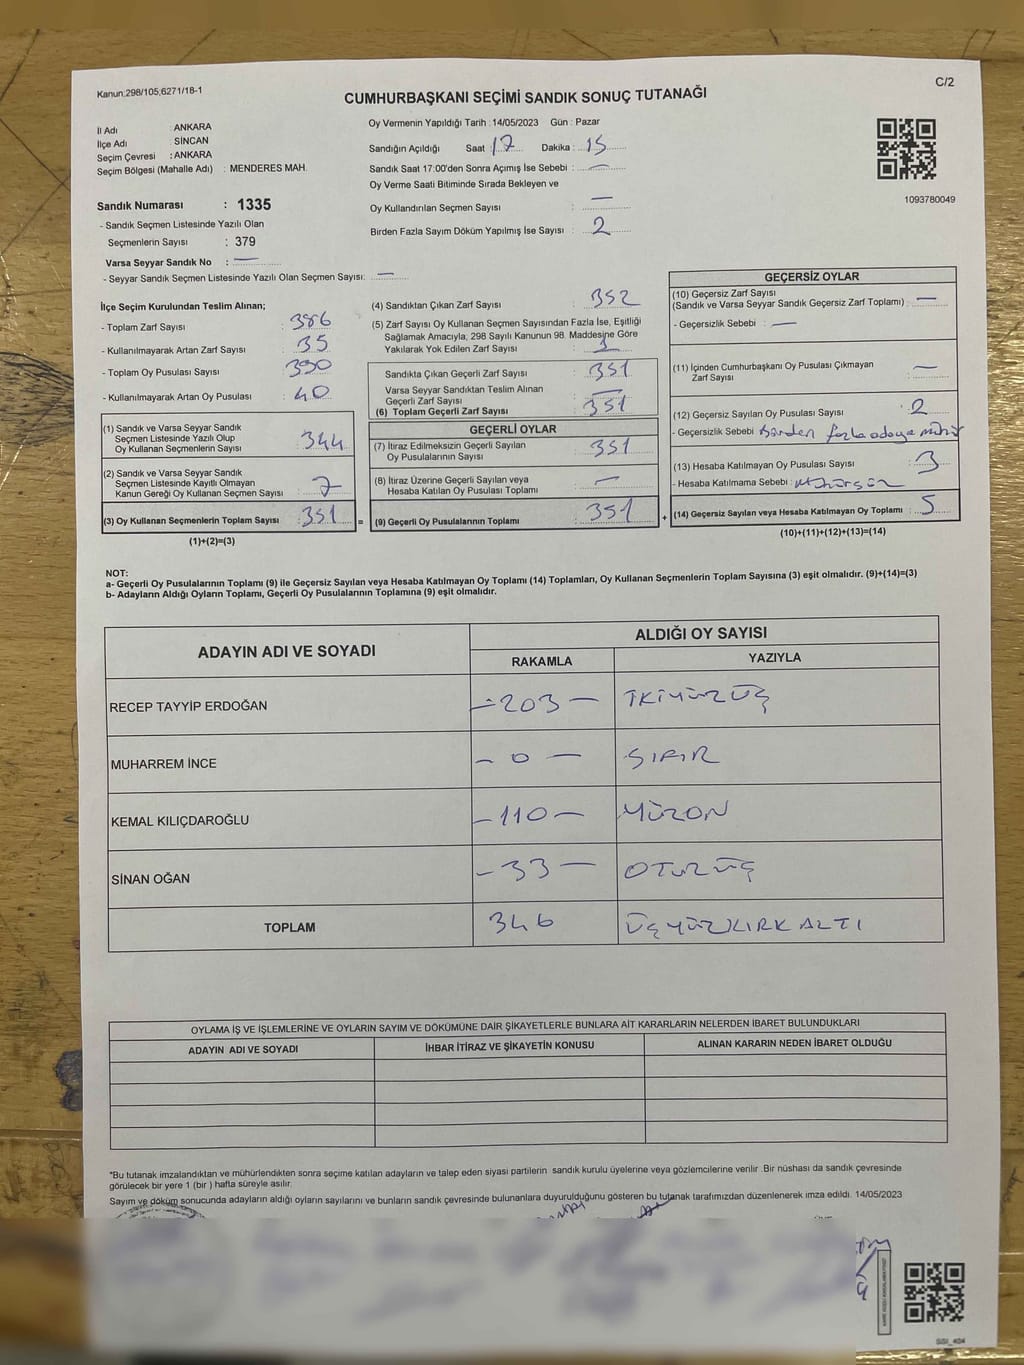 Kanun:298/105,6271/18-1
C/2
CUMHURBAŞKANI SEÇİMİ SANDIK SONUÇ TUTANAĞI
İl Adı : ANKARA
İlçe Adı : SİNCAN
Seçim Çevresi : ANKARA
Seçim Bölgesi (Mahalle Adı) : MENDERES MAH.
Sandık Numarası : 1335
- Sandık Seçmen Listesinde Yazılı Olan
Seçmenlerin Sayısı : 379
Varsa Seyyar Sandık No : —
- Seyyar Sandık Seçmen Listesinde Yazılı Olan Seçmen Sayısı: —
Oy Vermenin Yapıldığı Tarih : 14/05/2023 Gün : Pazar
Sandığın Açıldığı Saat 17 Dakika : 15
Sandık Saat 17:00'den Sonra Açımış İse Sebebi : —
Oy Verme Saati Bitiminde Sırada Bekleyen ve
Oy Kullandırılan Seçmen Sayısı : —
Birden Fazla Sayım Döküm Yapılmış İse Sayısı : 2
1093780049
İlçe Seçim Kurulundan Teslim Alınan;
- Toplam Zarf Sayısı : 386
- Kullanılmayarak Artan Zarf Sayısı : 35
- Toplam Oy Pusulası Sayısı : 390
- Kullanılmayarak Artan Oy Pusulası : 40
(1) Sandık ve Varsa Seyyar Sandık
Seçmen Listesinde Yazılı Olup
Oy Kullanan Seçmenlerin Sayısı : 344
(2) Sandık ve Varsa Seyyar Sandık
Seçmen Listesinde Kayıtlı Olmayan
Kanun Gereği Oy Kullanan Seçmen Sayısı : 7
(3) Oy Kullanan Seçmenlerin Toplam Sayısı : 351 =
(1)+(2)=(3)
(4) Sandıktan Çıkan Zarf Sayısı : 352
(5) Zarf Sayısı Oy Kullanan Seçmen Sayısından Fazla İse, Eşitliği
Sağlamak Amacıyla, 298 Sayılı Kanunun 98. Maddesine Göre
Yakılarak Yok Edilen Zarf Sayısı : 1
Sandıkta Çıkan Geçerli Zarf Sayısı : 351
Varsa Seyyar Sandıktan Teslim Alınan
Geçerli Zarf Sayısı : —
(6) Toplam Geçerli Zarf Sayısı : 351
GEÇERLİ OYLAR
(7) İtiraz Edilmeksizin Geçerli Sayılan
Oy Pusulalarının Sayısı : 351
(8) İtiraz Üzerine Geçerli Sayılan veya
Hesaba Katılan Oy Pusulası Toplamı : —
(9) Geçerli Oy Pusulalarının Toplamı : 351 +
GEÇERSİZ OYLAR
(10) Geçersiz Zarf Sayısı
(Sandık ve Varsa Seyyar Sandık Geçersiz Zarf Toplamı) : —
- Geçersizlik Sebebi : —
(11) İçinden Cumhurbaşkanı Oy Pusulası Çıkmayan
Zarf Sayısı : —
(12) Geçersiz Sayılan Oy Pusulası Sayısı : 2
- Geçersizlik Sebebi : Birden fazla adaya mühür
(13) Hesaba Katılmayan Oy Pusulası Sayısı : 3
- Hesaba Katılmama Sebebi : Mühürsüz
(14) Geçersiz Sayılan veya Hesaba Katılmayan Oy Toplamı : 5
(10)+(11)+(12)+(13)=(14)
NOT:
a- Geçerli Oy Pusulalarının Toplamı (9) ile Geçersiz Sayılan veya Hesaba Katılmayan Oy Toplamı (14) Toplamları, Oy Kullanan Seçmenlerin Toplam Sayısına (3) eşit olmalıdır. (9)+(14)=(3)
b- Adayların Aldığı Oyların Toplamı, Geçerli Oy Pusulalarının Toplamına (9) eşit olmalıdır.
ADAYIN ADI VE SOYADI ALDIĞI OY SAYISI
RAKAMLA YAZIYLA
RECEP TAYYİP ERDOĞAN —203— İKİYÜZÜÇ
MUHARREM İNCE —0— SIFIR
KEMAL KILIÇDAROĞLU —110— YÜZON
SİNAN OĞAN —33— OTUZÜÇ
TOPLAM 346 ÜÇYÜZKIRKALTI
OYLAMA İŞ VE İŞLEMLERİNE VE OYLARIN SAYIM VE DÖKÜMÜNE DAİR ŞİKAYETLERLE BUNLARA AİT KARARLARIN NELERDEN İBARET BULUNDUKLARI
ADAYIN ADI VE SOYADI İHBAR İTİRAZ VE ŞİKAYETİN KONUSU ALINAN KARARIN NEDEN İBARET OLDUĞU
*Bu tutanak imzalandıktan ve mühürlendikten sonra seçime katılan adayların ve talep eden siyasi partilerin sandık kurulu üyelerine veya gözlemcilerine verilir .Bir nüshası da sandık çevresinde
görülecek bir yere 1 (bir ) hafta süreyle asılır.
Sayım ve döküm sonucunda adayların aldığı oyların sayılarını ve bunların sandık çevresinde bulunanlara duyurulduğunu gösteren bu tutanak tarafımızdan düzenlenerek imza edildi. 14/05/2023